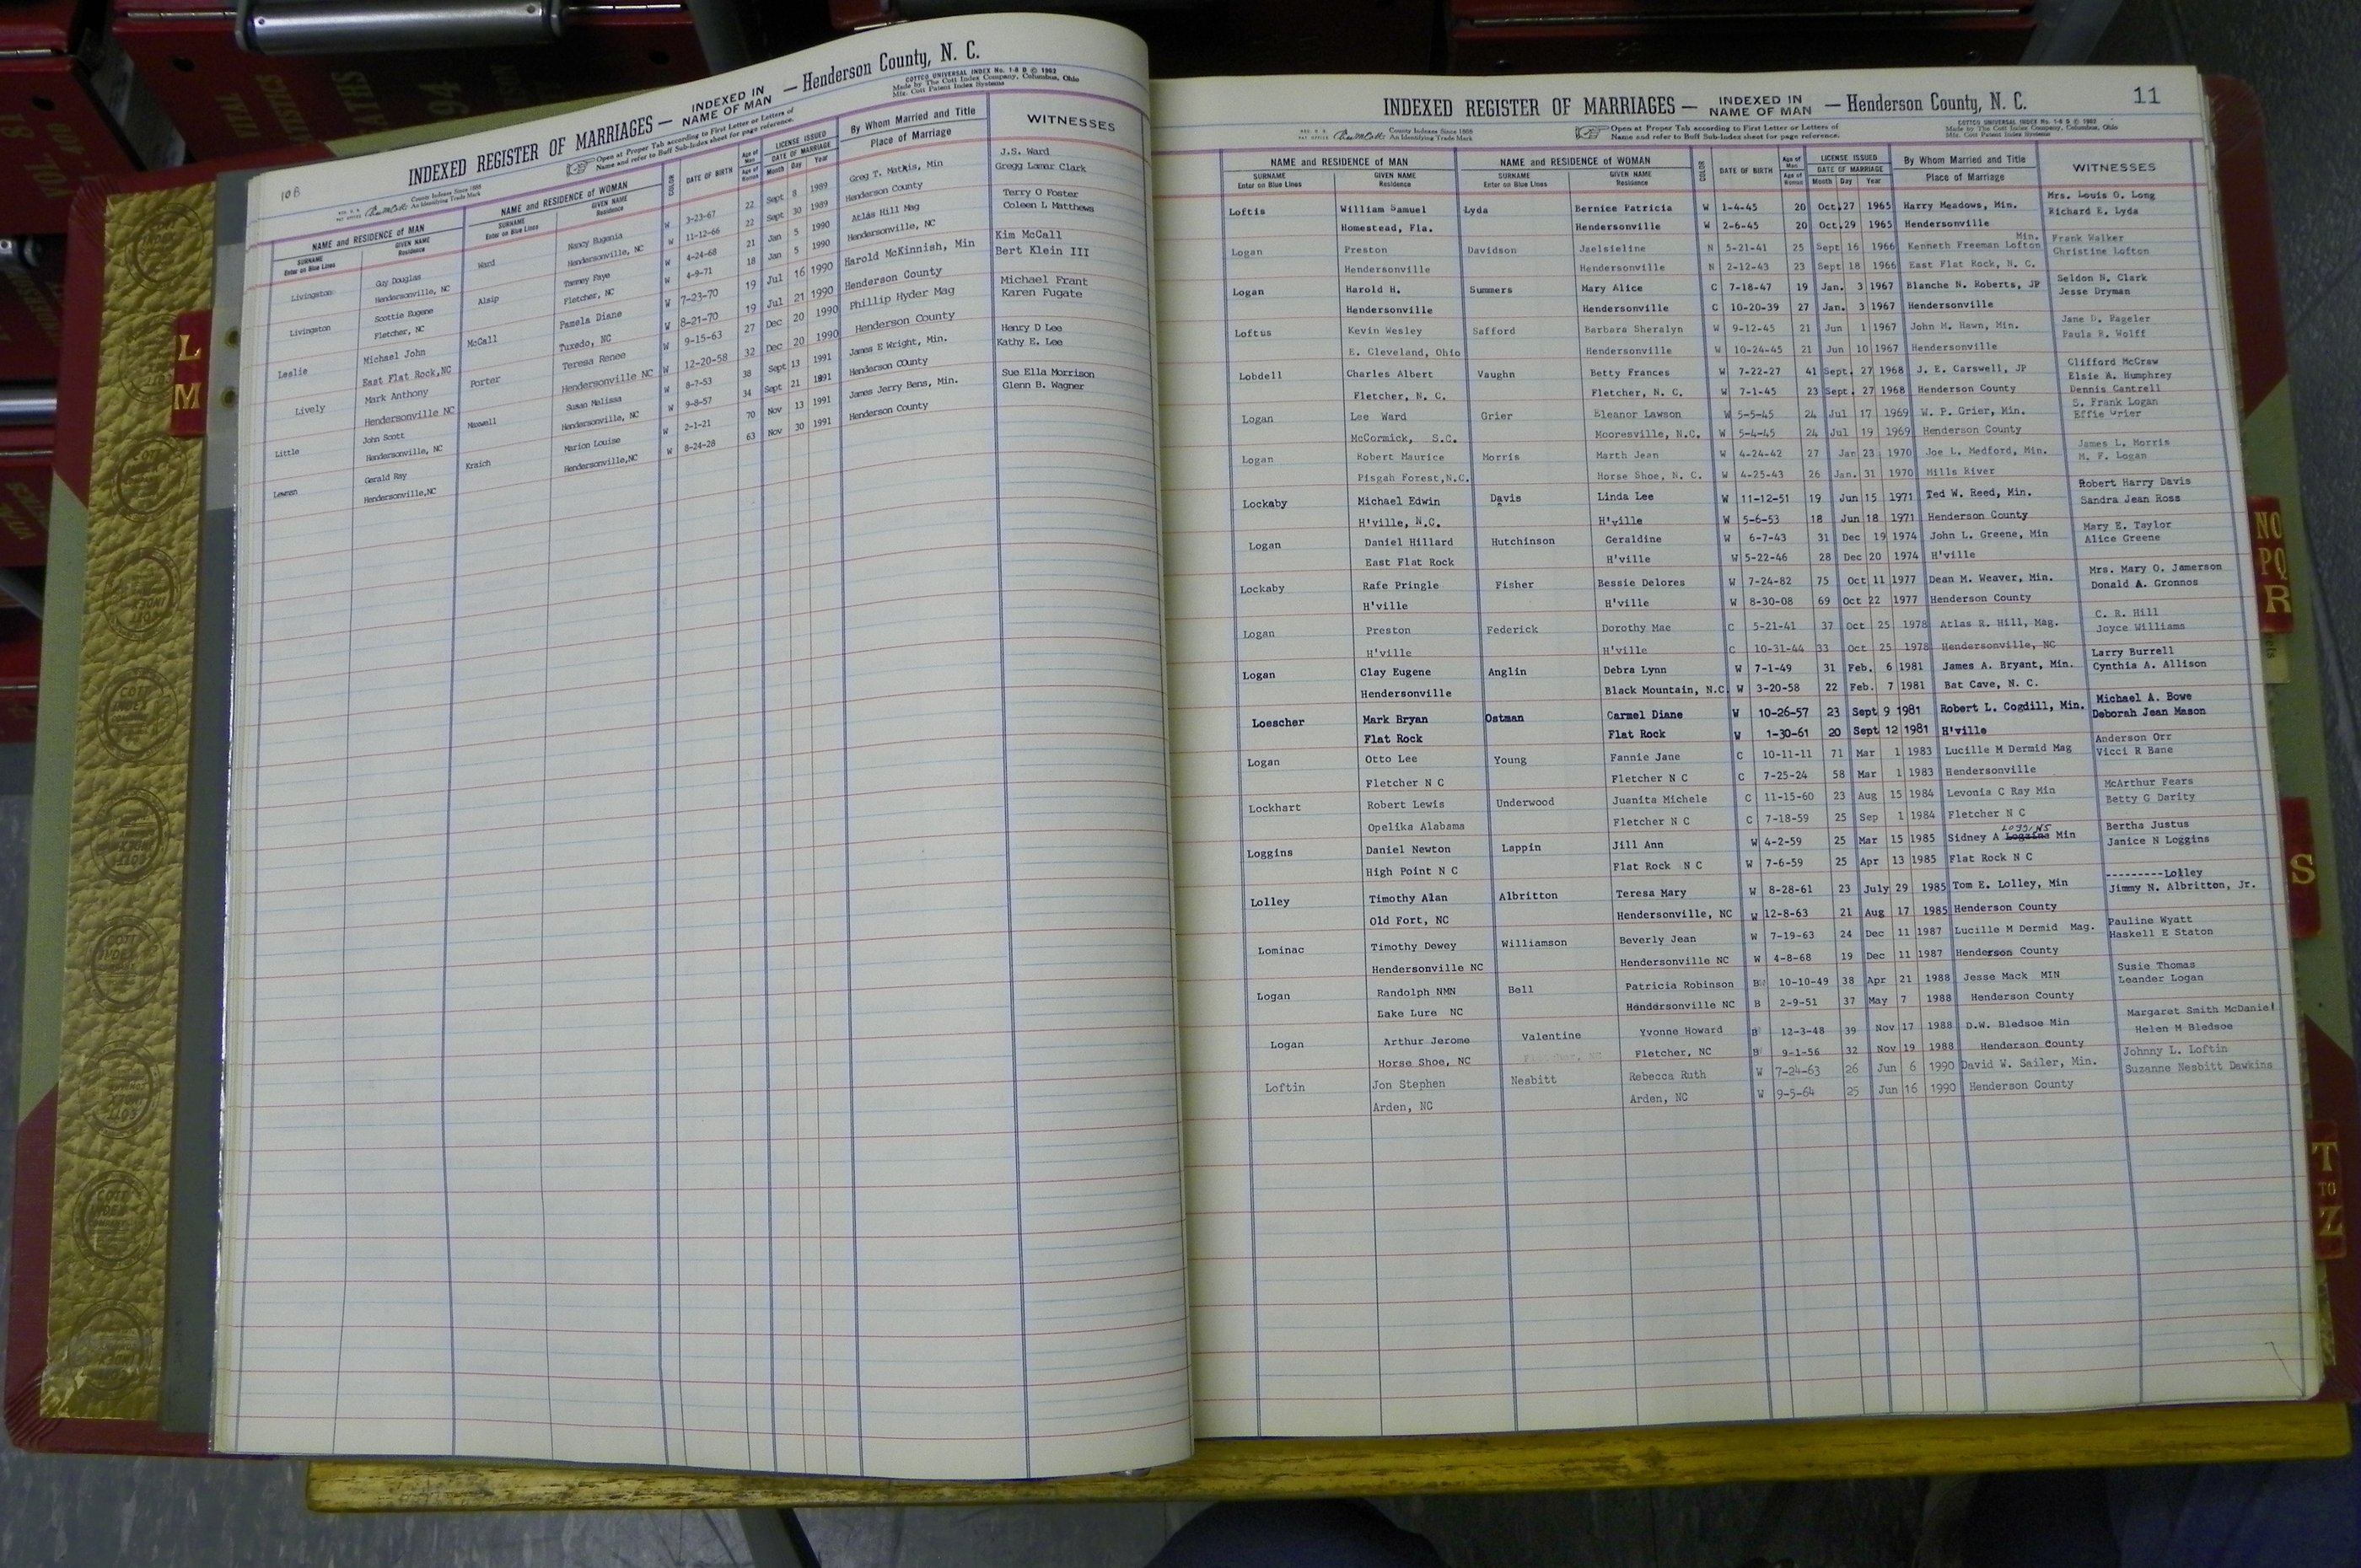 10B
INDEXED REGISTER OF MARRIAGES — INDEXED IN NAME OF MAN — Henderson County, N. C.
County Indexes Since 1888
An Identifying Trade Mark
Open at Proper Tab according to First Letter or Letters of
Name and refer to Buff Sub-Index sheet for page reference.
COTTCO UNIVERSAL INDEX No. 1-8 D © 1962
Made by The Cott Index Company, Columbus, Ohio
Mfr. Cott Patent Index Systems
NAME and RESIDENCE OF MAN NAME and RESIDENCE OF WOMAN COLOR DATE OF BIRTH Age of Man LICENSE ISSUED By Whom Married and Title WITNESSES
SURNAME Enter on Blue Lines GIVEN NAME Residence SURNAME Enter on Blue Lines GIVEN NAME Residence Age of Woman DATE OF MARRIAGE Month Day Year Place of Marriage
J.S. Ward
Livingston Guy Douglas Ward Nancy Eugenia W 3-23-67 22 Sept 8 1989 Greg T. Mathis, Min Gregg Lamar Clark
Hendersonville, NC Hendersonville, NC W 11-12-66 22 Sept 30 1989 Henderson County
Terry O Foster
Livingston Scottie Eugene Alsip Tammy Faye W 4-24-68 21 Jan 5 1990 Atlas Hill Mag Coleen L Matthews
Fletcher, NC Fletcher, NC W 4-9-71 18 Jan 5 1990 Hendersonville, NC
Kim McCall
Leslie Michael John McCall Pamela Diane W 7-23-70 19 Jul 16 1990 Harold McKinnish, Min Bert Klein III
East Flat Rock,NC Tuxedo, NC W 8-21-70 19 Jul 21 1990 Henderson County
Michael Frant
Lively Mark Anthony Porter Teresa Renee W 9-15-63 27 Dec 20 1990 Phillip Hyder Mag Karen Fugate
Hendersonville NC Hendersonville NC W 12-20-58 32 Dec 20 1990 Henderson County
Henry D Lee
Little John Scott Maxwell Susan Malissa W 8-7-53 38 Sept 13 1991 James E Wright, Min. Kathy E. Lee
Hendersonville, NC Hendersonville, NC W 9-8-57 34 Sept 21 1991 Henderson COunty
Sue Ella Morrison
Lewman Gerald Ray Kraich Marion Louise W 2-1-21 70 Nov 13 1991 James Jerry Bens, Min. Glenn B. Wagner
Hendersonville,NC Hendersonville,NC W 8-24-28 63 Nov 30 1991 Henderson County
L
M
11
INDEXED REGISTER OF MARRIAGES — INDEXED IN NAME OF MAN — Henderson County, N. C.
County Indexes Since 1888
An Identifying Trade Mark
Open at Proper Tab according to First Letter or Letters of
Name and refer to Buff Sub-Index sheet for page reference.
COTTCO UNIVERSAL INDEX No. 1-8 D © 1962
Made by The Cott Index Company, Columbus, Ohio
Mfr. Cott Patent Index Systems
NAME and RESIDENCE OF MAN NAME and RESIDENCE OF WOMAN COLOR DATE OF BIRTH Age of Man LICENSE ISSUED By Whom Married and Title WITNESSES
SURNAME Enter on Blue Lines GIVEN NAME Residence SURNAME Enter on Blue Lines GIVEN NAME Residence Age of Woman DATE OF MARRIAGE Month Day Year Place of Marriage
Mrs. Louis O. Long
Loftis William Samuel Lyda Bernice Patricia W 1-4-45 20 Oct.27 1965 Harry Meadows, Min. Richard E. Lyda
Homestead, Fla. Hendersonville W 2-6-45 20 Oct.29 1965 Hendersonville
Min. Frank Walker
Logan Preston Davidson Jaelsieline N 5-21-41 25 Sept 16 1966 Kenneth Freeman Lofton Christine Lofton
Hendersonville Hendersonville N 2-12-43 23 Sept 18 1966 East Flat Rock, N. C.
Seldon N. Clark
Logan Harold H. Summers Mary Alice C 7-18-47 19 Jan. 3 1967 Blanche N. Roberts, JP Jesse Dryman
Hendersonville Hendersonville C 10-20-39 27 Jan. 3 1967 Hendersonville
Jane D. Hageler
Loftus Kevin Wesley Safford Barbara Sheralyn W 9-12-45 21 Jun 1 1967 John M. Hawn, Min. Paula R. Wolff
E. Cleveland, Ohio Hendersonville W 10-24-45 21 Jun 10 1967 Hendersonville
Clifford McCraw
Lobdell Charles Albert Vaughn Betty Frances W 7-22-27 41 Sept. 27 1968 J. E. Carswell, JP Elsie A. Humphrey
Fletcher, N. C. Fletcher, N. C. W 7-1-45 23 Sept. 27 1968 Henderson County Dennis Cantrell
S. Frank Logan
Logan Lee Ward Grier Eleanor Lawson W 5-5-45 24 Jul 17 1969 W. P. Grier, Min. Effie Grier
McCormick, S.C. Mooresville, N.C. W 5-4-45 24 Jul 19 1969 Henderson County
James L. Morris
Logan Robert Maurice Morris Marth Jean W 4-24-42 27 Jan 23 1970 Joe L. Medford, Min. M. F. Logan
Pisgah Forest,N.C. Horse Shoe, N. C. W 4-25-43 26 Jan. 31 1970 Mills River
Robert Harry Davis
Lockaby Michael Edwin Davis Linda Lee W 11-12-51 19 Jun 15 1971 Ted W. Reed, Min. Sandra Jean Ross
H'ville, N.C. H'ville W 5-6-53 18 Jun 18 1971 Henderson County
Mary E. Taylor
Logan Daniel Hillard Hutchinson Geraldine W 6-7-43 31 Dec 19 1974 John L. Greene, Min Alice Greene
East Flat Rock H'ville W 5-22-46 28 Dec 20 1974 H'ville
Mrs. Mary O. Jamerson
Lockaby Rafe Pringle Fisher Bessie Delores W 7-24-82 75 Oct 11 1977 Dean M. Weaver, Min. Donald A. Gronnos
H'ville H'ville W 8-30-08 69 Oct 22 1977 Henderson County
C. R. Hill
Logan Preston Federick Dorothy Mae C 5-21-41 37 Oct 25 1978 Atlas R. Hill, Mag. Joyce Williams
H'ville H'ville C 10-31-44 33 Oct 25 1978 Hendersonville, NC
Larry Burrell
Logan Clay Eugene Anglin Debra Lynn W 7-1-49 31 Feb. 6 1981 James A. Bryant, Min. Cynthia A. Allison
Hendersonville Black Mountain, N.C. W 3-20-58 22 Feb. 7 1981 Bat Cave, N. C.
Michael A. Bowe
Loescher Mark Bryan Ostman Carmel Diane W 10-26-57 23 Sept 9 1981 Robert L. Cogdill, Min. Deborah Jean Mason
Flat Rock Flat Rock W 1-30-61 20 Sept 12 1981 H'ville
Anderson Orr
Logan Otto Lee Young Fannie Jane C 10-11-11 71 Mar 1 1983 Lucille M Dermid Mag Vicci R Bane
Fletcher N C Fletcher N C C 7-25-24 58 Mar 1 1983 Hendersonville
McArthur Fears
Lockhart Robert Lewis Underwood Juanita Michele C 11-15-60 23 Aug 15 1984 Levonia C Ray Min Betty G Darity
Opelika Alabama Fletcher N C C 7-18-59 25 Sep 1 1984 Fletcher N C
LOGGINS Bertha Justus
Loggins Daniel Newton Lappin Jill Ann W 4-2-59 25 Mar 15 1985 Sidney A Loggins Min Janice N Loggins
High Point N C Flat Rock N C W 7-6-59 25 Apr 13 1985 Flat Rock N C
---------Lolley
Lolley Timothy Alan Albritton Teresa Mary W 8-28-61 23 July 29 1985 Tom E. Lolley, Min Jimmy N. Albritton, Jr.
Old Fort, NC Hendersonville, NC W 12-8-63 21 Aug 17 1985 Henderson County
Pauline Wyatt
Lominac Timothy Dewey Williamson Beverly Jean W 7-19-63 24 Dec 11 1987 Lucille M Dermid Mag. Haskell E Staton
Hendersonville NC Hendersonville NC W 4-8-68 19 Dec 11 1987 Henderson County
Susie Thomas
Logan Randolph NMN Bell Patricia Robinson B 10-10-49 38 Apr 21 1988 Jesse Mack MIN Leander Logan
Lake Lure NC Hendersonville NC B 2-9-51 37 May 7 1988 Henderson County
Margaret Smith McDaniel
Logan Arthur Jerome Valentine Yvonne Howard B 12-3-48 39 Nov 17 1988 D.W. Bledsoe Min Helen M Bledsoe
Horse Shoe, NC Fletcher, NC B 9-1-56 32 Nov 19 1988 Henderson County
Johnny L. Loftin
Loftin Jon Stephen Nesbitt Rebecca Ruth W 7-24-63 26 Jun 6 1990 David W. Sailer, Min. Suzanne Nesbitt Dawkins
Arden, NC Arden, NC W 9-5-64 25 Jun 16 1990 Henderson County
NO
PQ
R
S
T
TO
Z